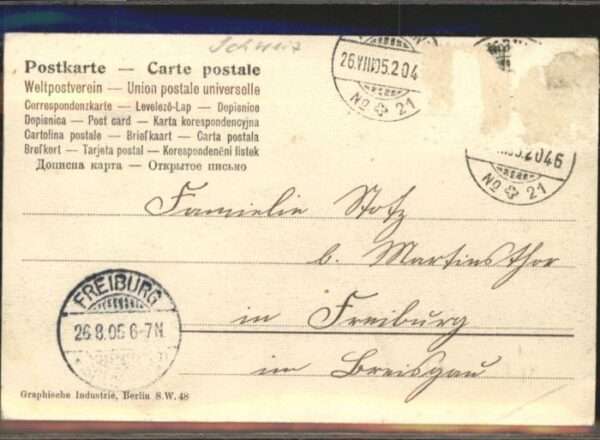 Schweiz
Postkarte — Carte postale
Weltpostverein — Union postale universelle
Correspondenzkarte — Levelező-Lap — Dopisnice
Dopisnica — Post card — Karta korespondencyjna
Cartolina postale — Briefkaart — Carta postala
Brefkort — Tarjeta postal — Korespondenční lístek
Дописна карта — Открытое письмо
26.VIII05.2 04
No 21
05.2046
No 21
Familie Stotz
b. Martinsthor
in Freiburg
im Breisgau
FREIBURG
26.8.05 6-7N.
Graphische Industrie, Berlin S.W. 48